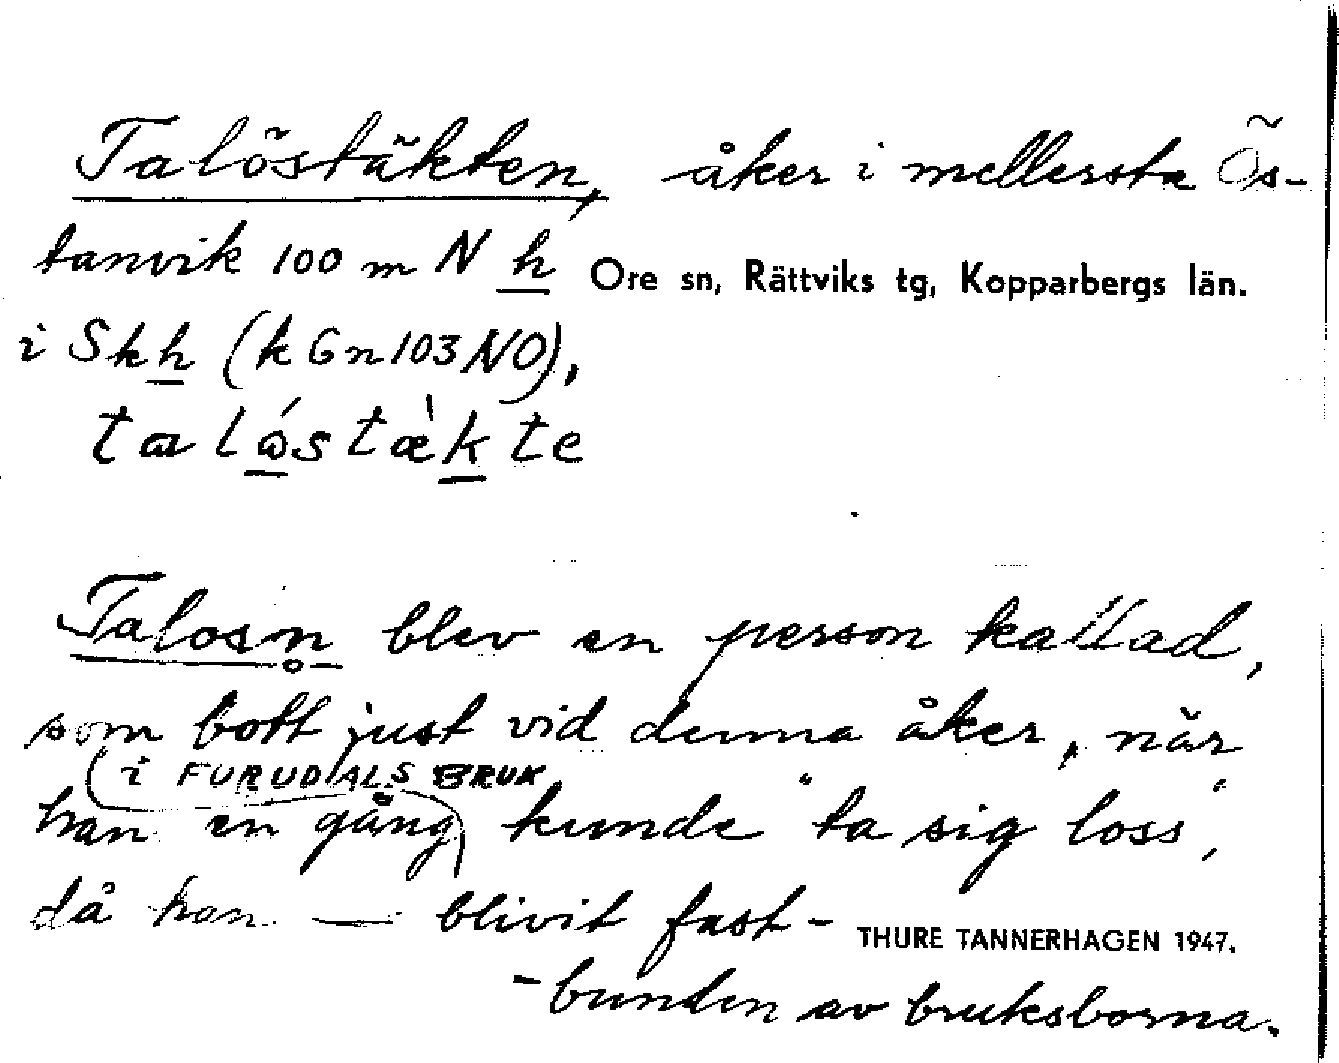 Talöstäkten, åker i mellersta Ös-
tanvik 100 m N h Ore sn, Rättviks tg, Kopparbergs län.
i Skh (k Gn 103 NO),
talǻstæ̀kte
Talosn̥ blev en person kallad,
som bott just vid denna åker, när
(i FURUDALS BRUK
han en gång) kunde "ta sig loss",
då han — blivit fast-
THURE TANNERHAGEN 1947.
-bunden av bruksborna.